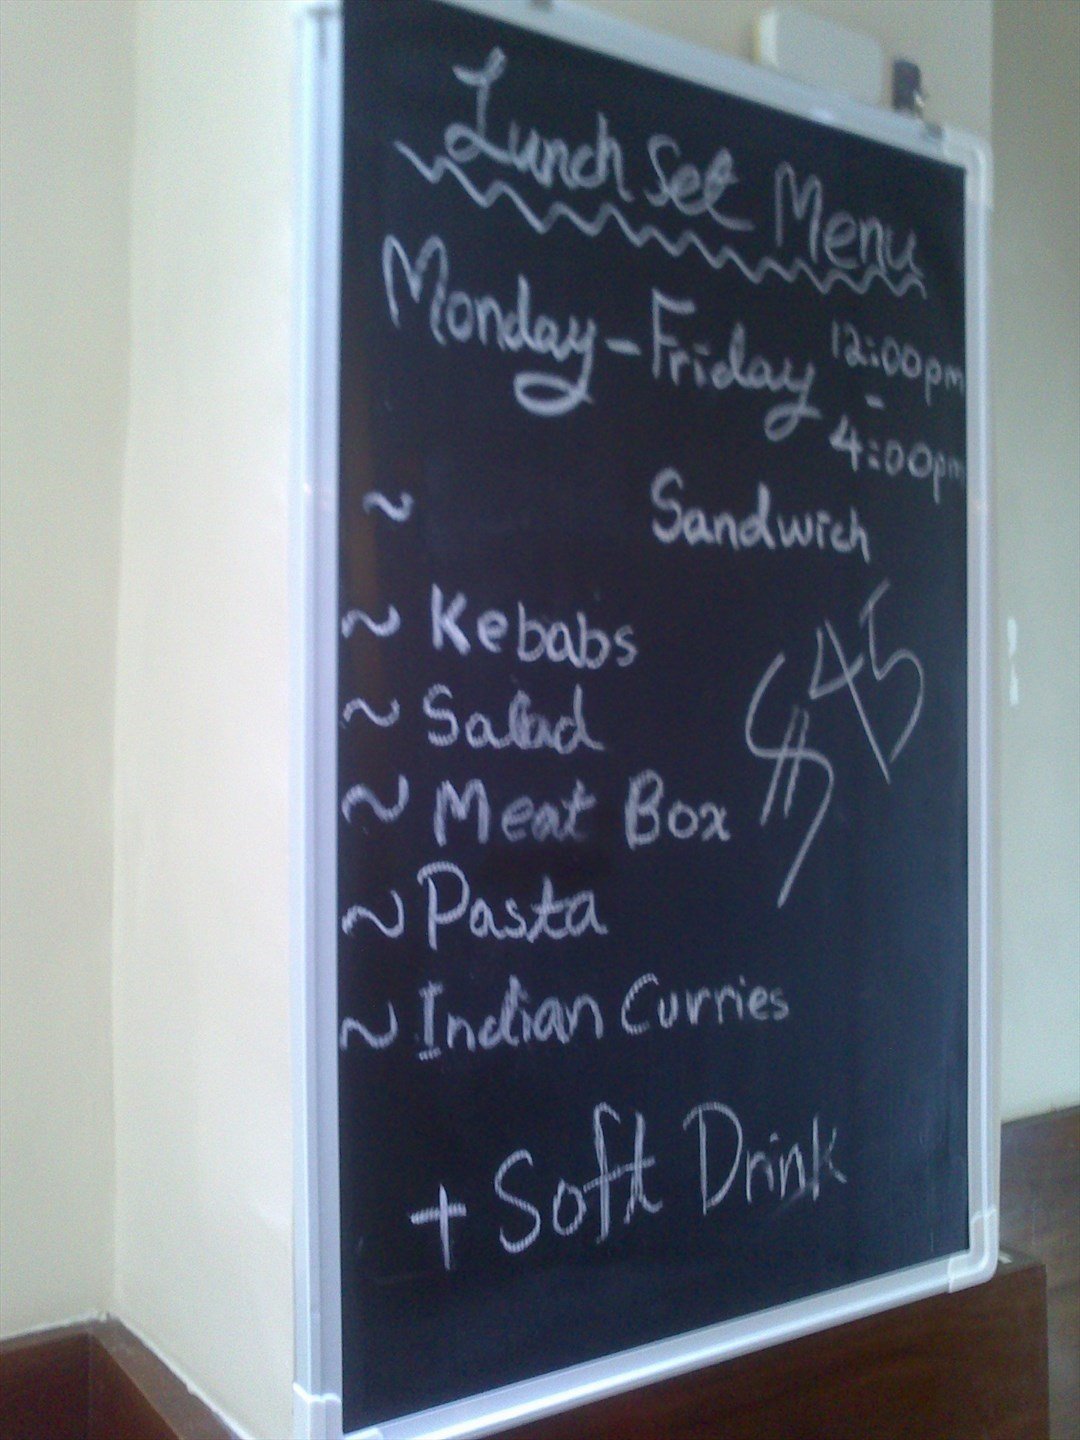 Lunch Set Menu
Monday - Friday 12:00pm
-
4:00pm
~ Sandwich
~ Kebabs
$45
~ Salad
~ Meat Box
~ Pasta
~ Indian Curries
+ Soft Drink